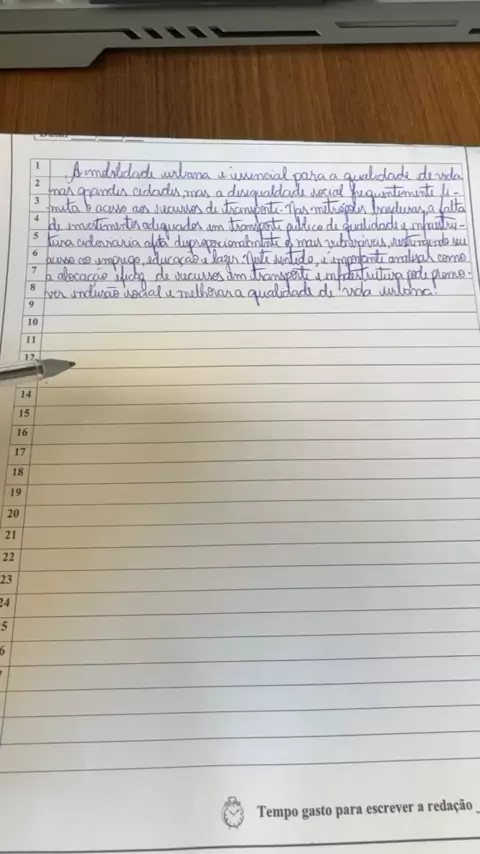 1 A mobilidade urbana é essencial para a qualidade de vida
2 nas grandes cidades, mas a desigualdade social frequentemente li-
3 mita o acesso aos recursos de transporte. Nas metrópoles brasileiras, a falta
4 de investimentos adequados em transporte público de qualidade e infraestru-
5 tura cicloviária afeta desproporcionalmente os mais vulneráveis, restringindo seu
6 acesso ao emprego, educação e lazer. Neste sentido, é importante analisar como
7 a alocação eficaz de recursos em transporte e infraestrutura pode promo-
8 ver inclusão social e melhorar a qualidade de vida urbana.
9
10
11
12
14
15
16
17
18
19
20
21
22
23
24
5
6
Tempo gasto para escrever a redação